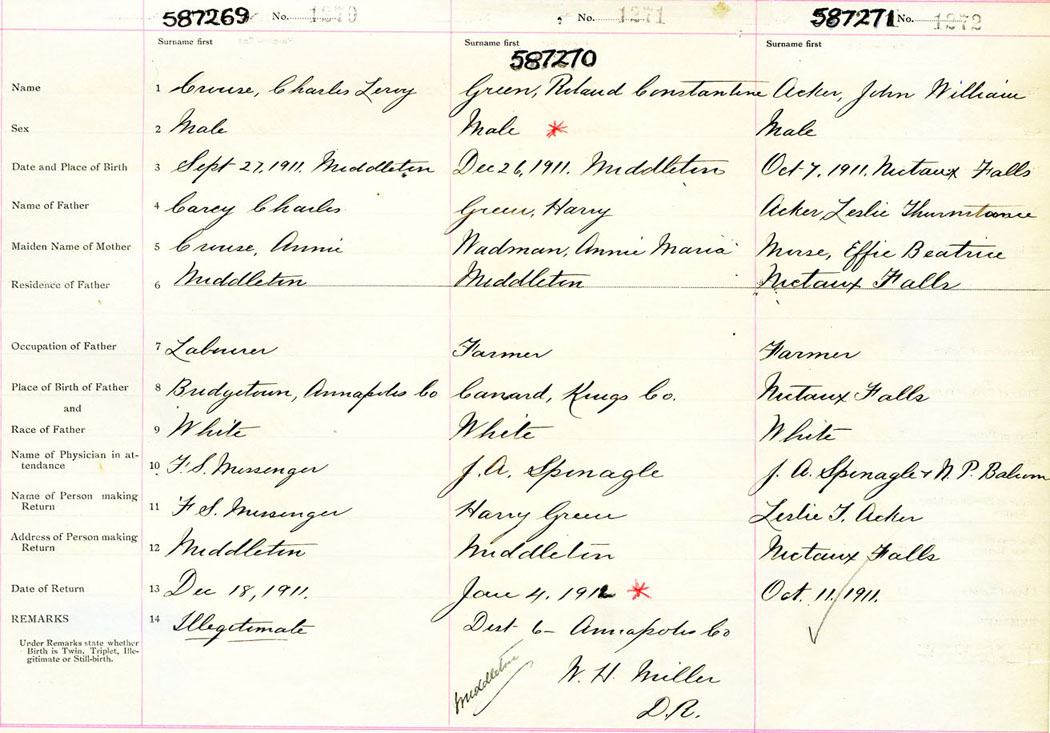 587269 No. 1270 No. 1271 587271 No. 1272
Surname first Surname first Surname first
587270
Name 1 Crouse, Charles Leroy Green, Roland Constantine Acker, John William
Sex 2 Male Male * Male
Date and Place of Birth 3 Sept 27, 1911. Middleton Dec 26, 1911. Middleton Oct 7, 1911. Nictaux Falls
Name of Father 4 Carey Charles Green, Harry Acker, Leslie
Maiden Name of Mother 5 Crouse, Annie Wadman, Annie Maria Morse, Effie Beatrice
Residence of Father 6 Middleton Middleton Nictaux Falls
Occupation of Father 7 Labourer Farmer Farmer
Place of Birth of Father 8 Bridgetown, Annapolis Co Canard, Kings Co. Nictaux Falls
and
Race of Father 9 White White White
Name of Physician in at-
tendance 10 F. S. Messenger J. A. Sponagle J. A. Sponagle + N. P.
Name of Person making
Return 11 F. S. Messenger Harry Green Leslie T. Acker
Address of Person making
Return 12 Middleton Middleton Nictaux Falls
Date of Return 13 Dec 18, 1911. Jan 4. 1912 * Oct. 11, 1911.
REMARKS 14 Illegitimate Dist 6 - Annapolis Co
Under Remarks state whether
Birth is Twin, Triplet, Ille-
gitimate or Still-birth.
Middleton
W. H. Miller
D.R.